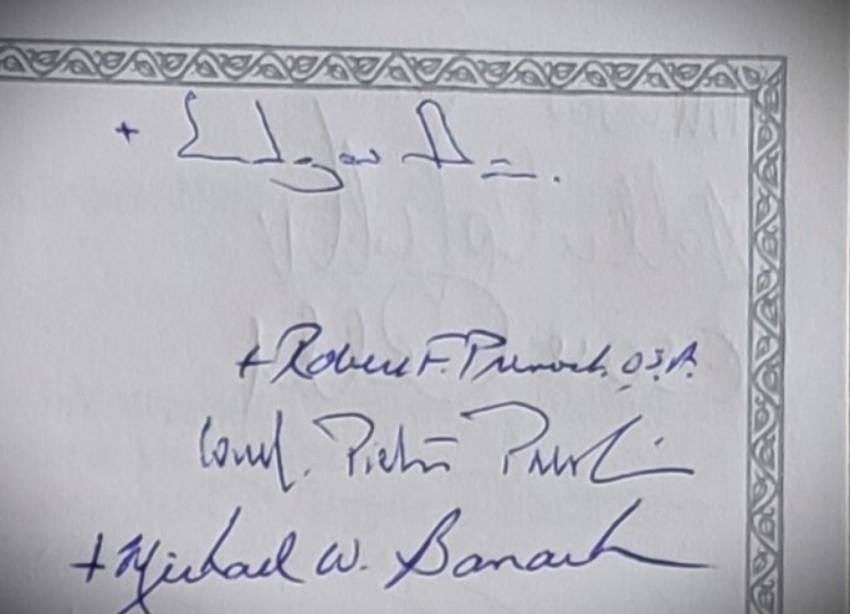 + Edgar
+ Robert F. Prevost, O.S.A.
Card. Pietro Parolin
+ Michael W. Banach